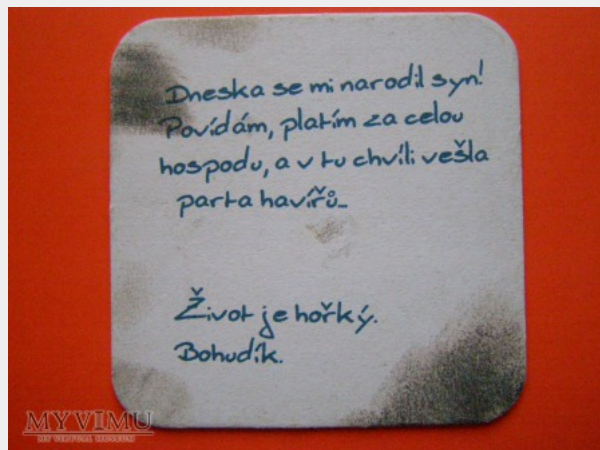 Dneska se mi narodil syn!
Povídám, platím za celou
hospodu, a v tu chvíli vešla
parta havířů...
Život je hořký.
Bohudík.
MYVIMU
MY VIRTUAL MUSEUM